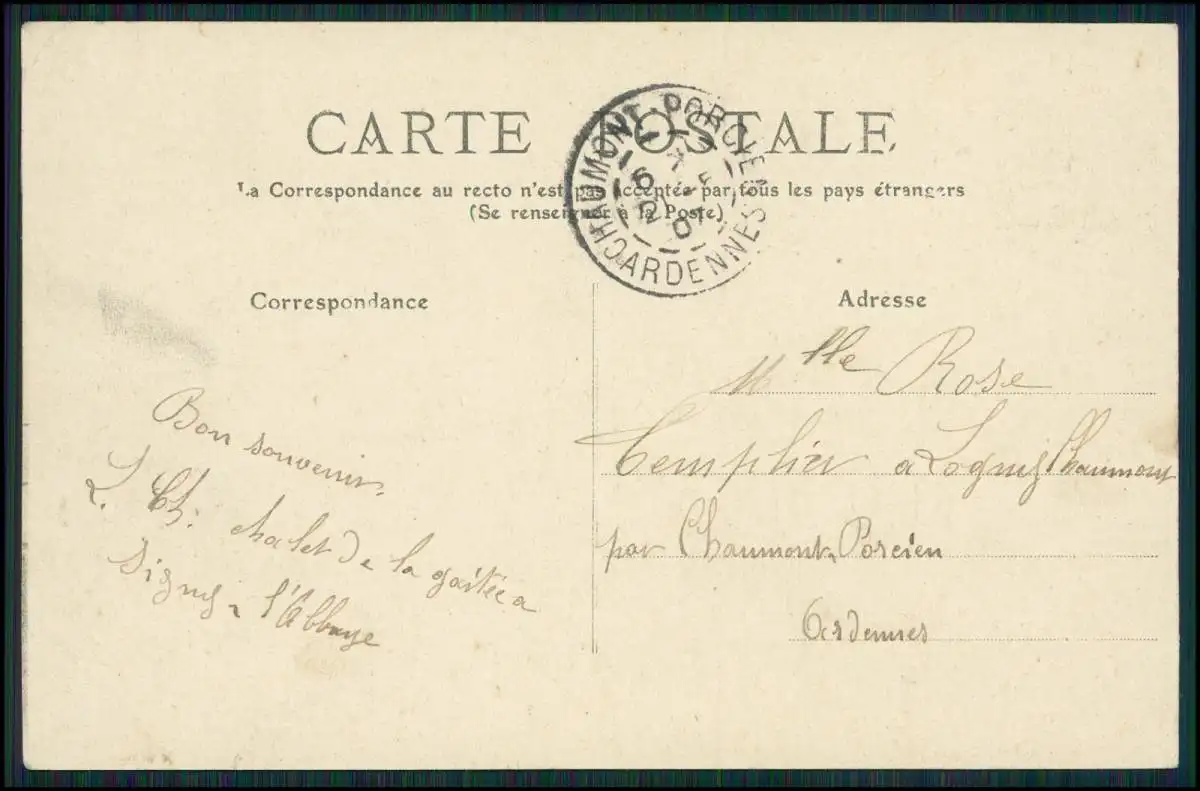 CARTE POSTALE
La Correspondance au recto n'est pas acceptée par tous les pays étrangers
(Se renseigner à la Poste)
CHAUMONT-PORCIEN
6
21 -5
07
ARDENNES
Correspondance
Bon souvenir.
L. Ch. chalet de la gaitée a
Signy-l'Abbaye
Adresse
Mlle Rose
Templier a Logny Chaumont
par Chaumont-Porcien
Ardennes